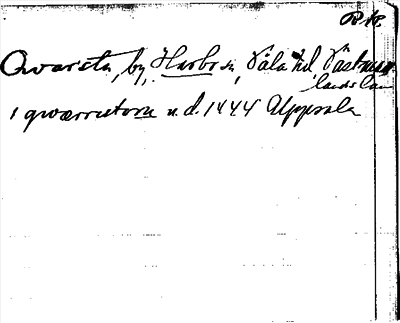 R.A.
Qvarsta, by, Harbo sn, Våla hd, Västman
lands län
i qwærnstom u.d. 1444 Uppsala